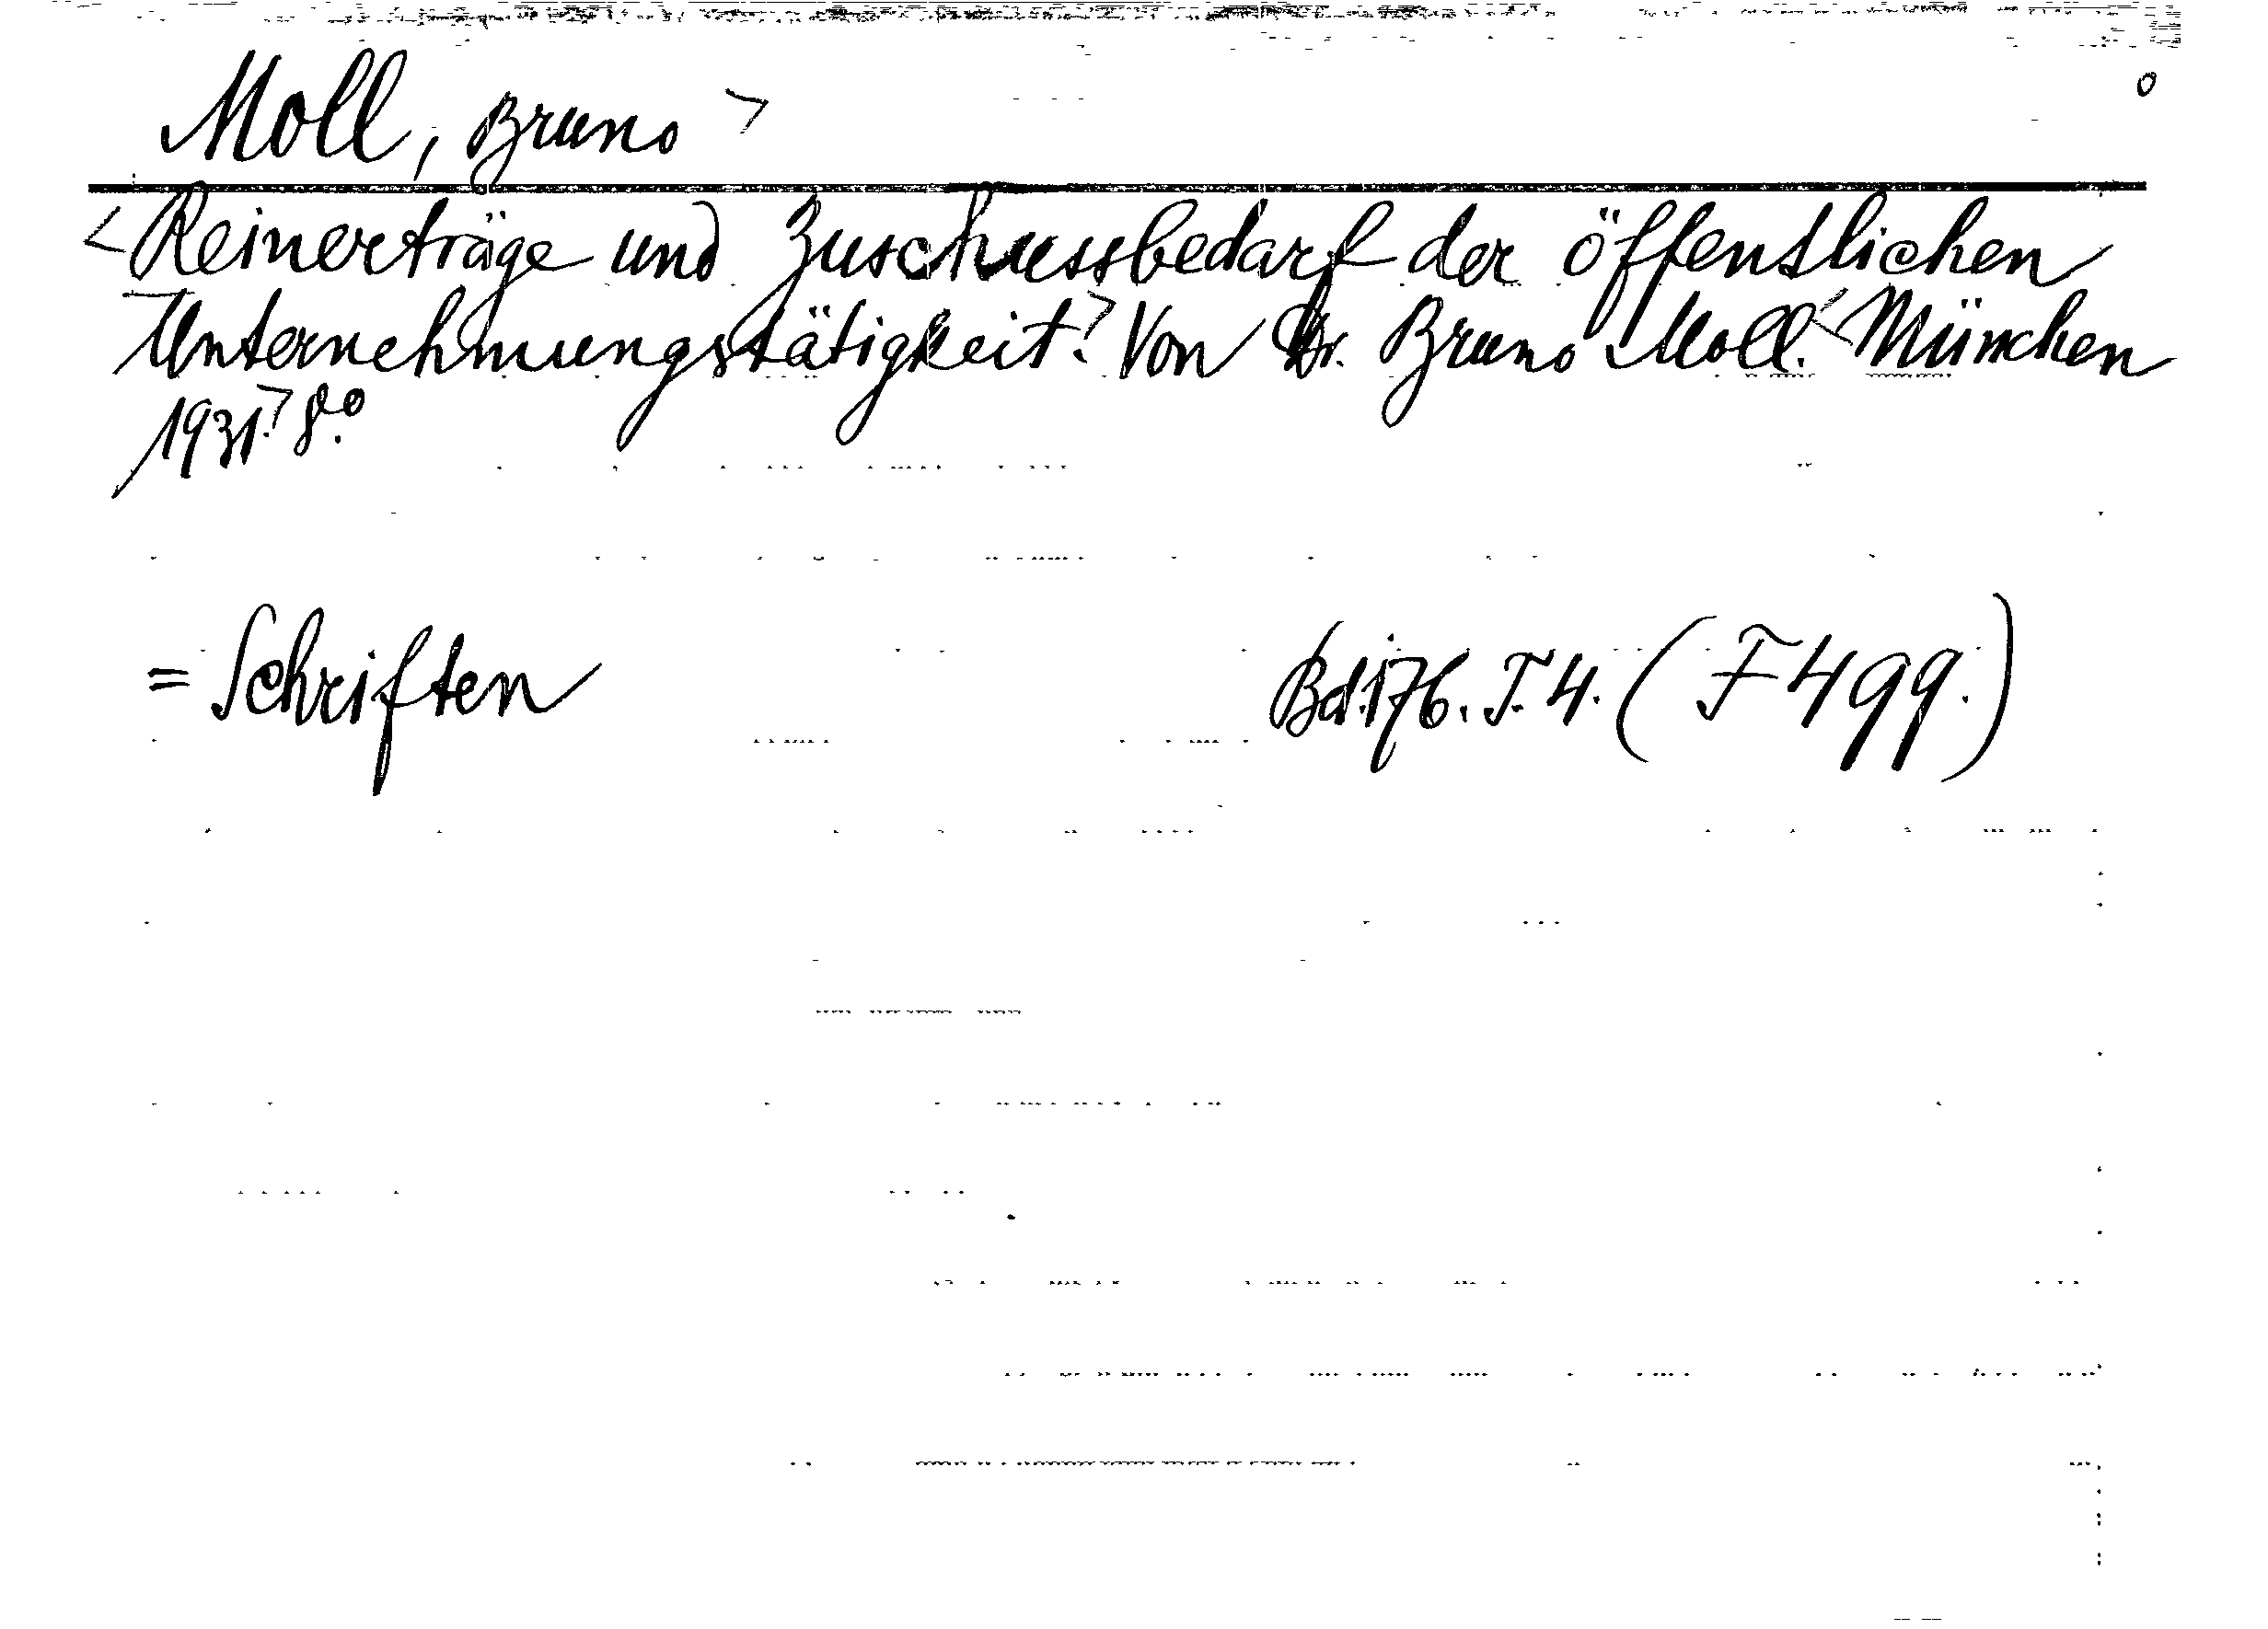 Moll, Bruno > o
<Reinerträge und Zuschussbedarf der öffentlichen
Unternehmungstätigkeit.> Von Dr. Bruno Moll. <München
1931.> 8°.
= Schriften Bd. 176. T. 4. (F 499.)